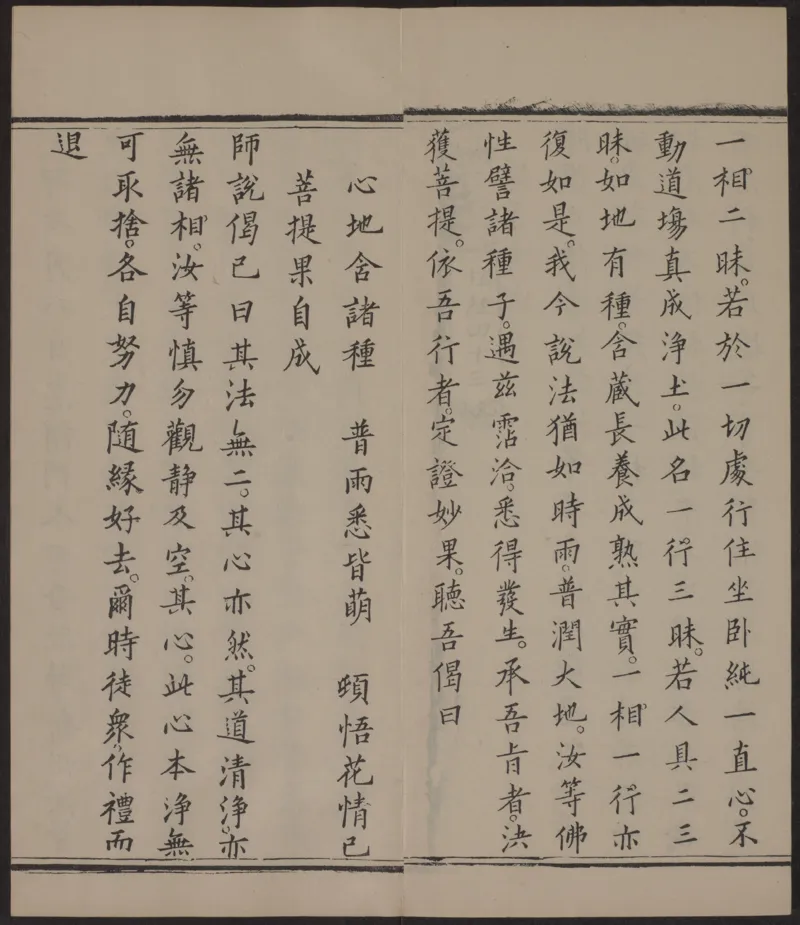 一相二昧。若於一切處行住坐卧純一直心。不
動道場真成淨土。此名一行三昧。若人具二三
昧。如地有種。含藏長養成熟其實。一相一行亦
復如是。我今說法猶如時雨。普潤大地。汝等佛
性譬諸種子。遇茲霑洽。悉得發生。承吾旨者。決
獲菩提。依吾行者。定證妙果。聽吾偈曰
心地含諸種　普雨悉皆萌　頓悟花情已
菩提果自成
師說偈已曰其法無二。其心亦然。其道清淨。亦
無諸相。汝等慎勿觀靜及空。其心。此心本淨無
可取捨。各自努力。隨緣好去。爾時徒衆。作禮而
退